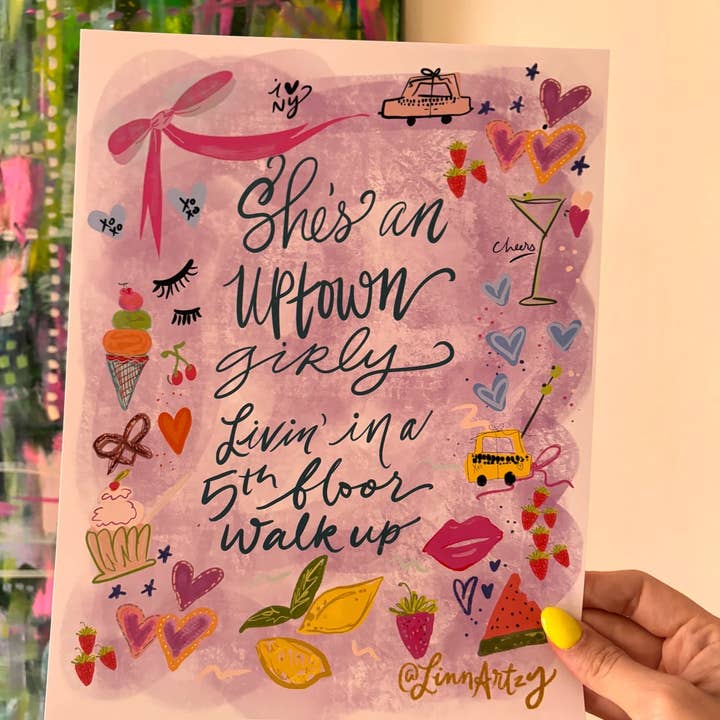 i ♥
NY
She's an
XO
XO
XO
XO
cheers
UPtown
girly
Livin' in a
5th floor
walk up
@LinnArtzy